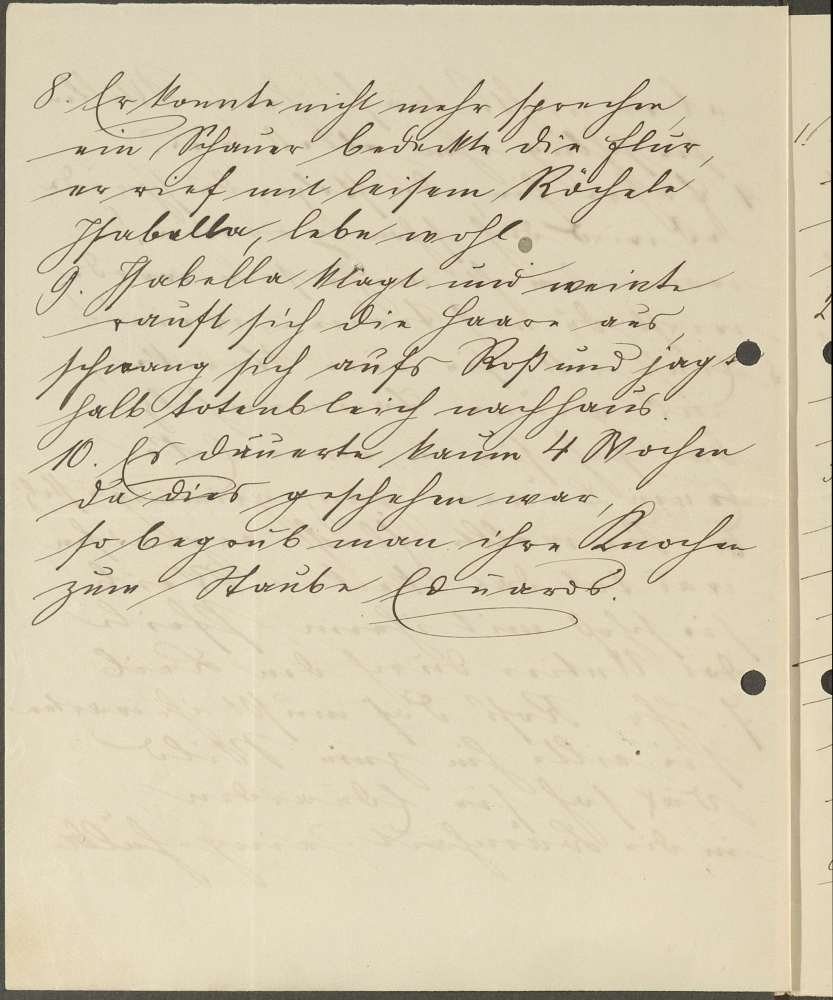 8. Er konnte nicht mehr sprechen,
ein Schauer bedeckte die Flur,
er rief mit leisem Röcheln
Isabella, lebe wohl.
9. Isabella klagt und weinte
rauft sich die Haare aus,
schwang sich aufs Roß und jagt
halb totenbleich nachhaus.
10. Es dauerte kaum 4 Wochen
da dies geschehen war,
so begrub man ihre Knochen
zum Staube Eduards.